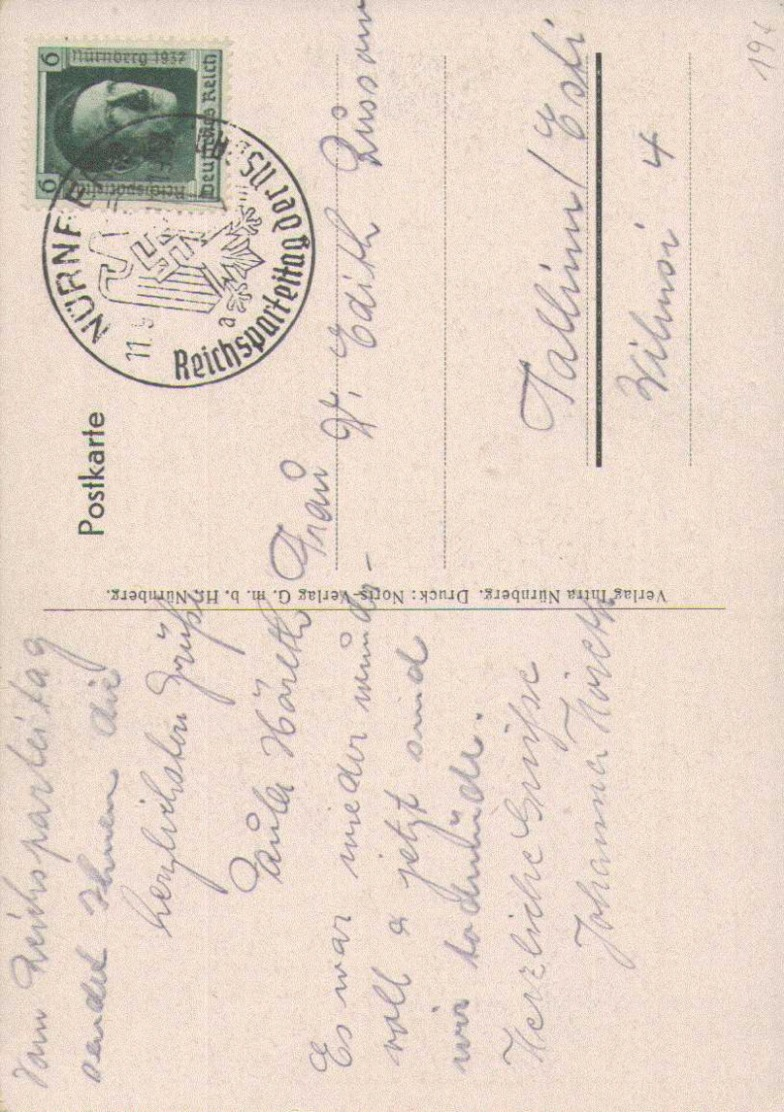 Vom Reichsparteitag
sendet Ihnen die
herzlichsten Grüße
Paula Höreth
Es war wieder wunder-
voll & jetzt sind
wir todmüde.
Herzliche Grüsse
Johanna Höreth
Verlag Intra Nürnberg. Druck: Noris-Verlag G. m. b. H., Nürnberg.
Postkarte
6 Nürnberg 1937 6
Reichsparteitag
Deutsches Reich
NÜRNBERG
11.9
a
Reichsparteitag der NSDAP
Frau Edith Russow
Tallinn / Esti
Wilmsi 4